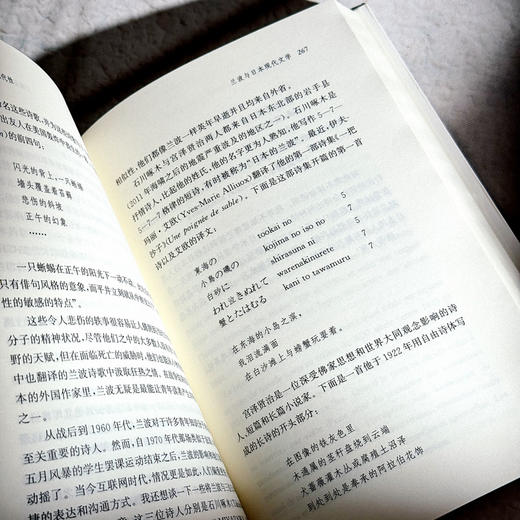 代性
名这些诗歌,并为这些诗
出友人在美国
的前四句
闪光的背上,一只蜥蜴
墙头覆盖着苔藓
悲伤的斜坡
正午的幻象
……
一只蜥蜴在正午的阳光下一动不动,
只有俳句风格的意象,而平井
性的敏感的特点”。
这些令人悲伤的轶事很容易让人
分子的精神状况,尽管他们之中的大多数人
野的天赋,但在面临死亡的威胁时,他们
中也翻译的兰波诗歌中汲取狂热。
本的外国作家里,兰波无疑是最能让青年
之一。
从战后到 1960 年代,兰波对于许多青年
至关重要的诗人。然而,自 1970 年代
五月风暴的学生罢课运动结束之后,
动摇了。当今互联网时代,情况更是如此,人们
捷的表达和沟通方式。我还想谈一些将兰波与
这三位诗人分别是石川啄木
兰波与日本现代文学 267
相似性,他们都像兰波一样英年早逝并且均来自外省。
石川啄木与宫泽贤治两人都来自日本东北部的岩手县
(2011 年海啸之后的地震严重波及的地区之一)。石川啄木是
抒情诗人,比起他的姓氏,他的名字更为人熟知,他写作 5—7—
5—7—7 格律的短诗,有时被称为“日本的兰波”。最近,伊夫-
玛丽·艾欧(Yves-Marie Allioux)翻译了他的第一部诗集《一把
沙子》(Une poignée de sable)。下面是这部诗集开篇的第一首
诗以及艾欧的译文:
東海の tookai no 5
小島の磯の kojima no iso no 7
白砂に shirasuna ni 5
われ泣きぬれて warenakinurete 7
蟹とたはむる kani to tawamuru 7
在东海的小岛之滨,
我泪流满面
在白沙滩上与螃蟹玩耍着。
宫泽贤治是一位深受佛家思想和世界大同观念影响的诗
人、短篇和长篇小说家。下面是一首他于 1922 年用自由诗体写
成的长诗的开头部分:
在图像的铁灰色里
木通属的茎秆盘绕到云端
大蔷薇灌木丛或腐殖土沼泽
到处到处是奉承的阿拉伯花饰